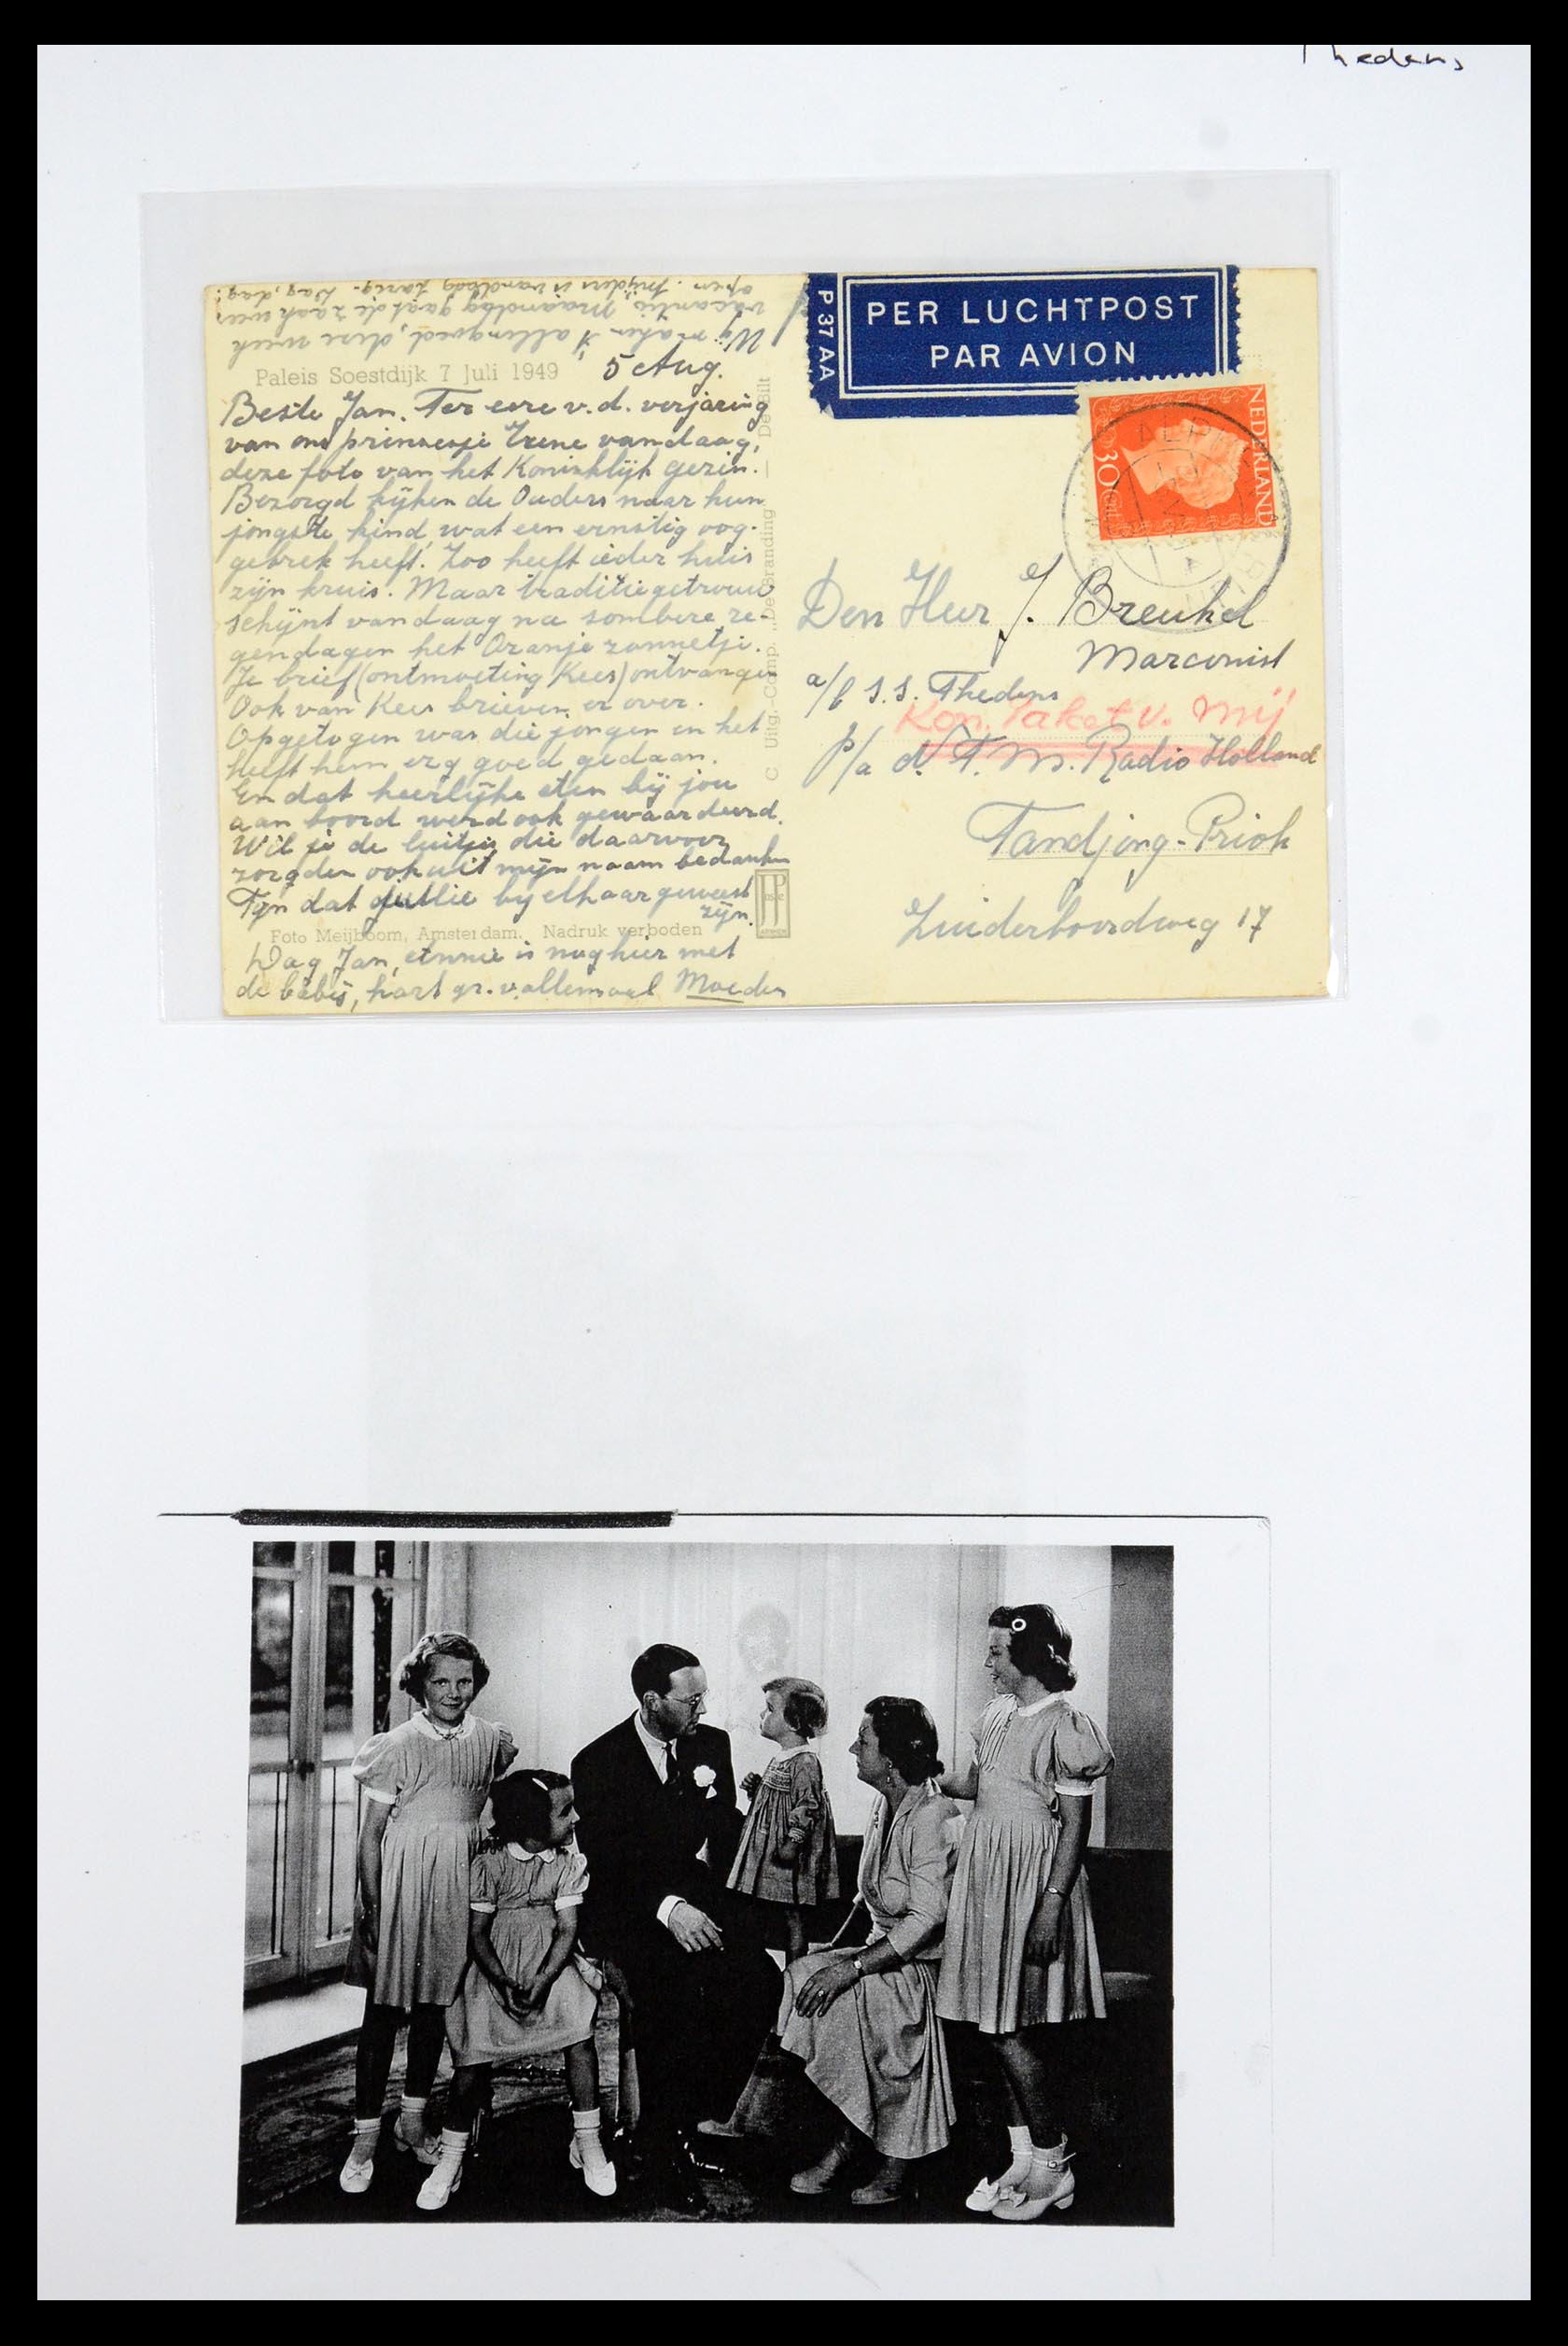 Thedens
Wij maken 't allen goed, deze week
vacantie Maandag gaat de zaak weer
open. is vandaag jarig. Dag, dag!
Paleis Soestdijk 7 Juli 1949
5 Aug.
Beste Jan. Ter eere v.d. verjaring
van ons prinsesje Irene vandaag,
deze foto van het Koninklijk gezin.
Bezorgd kijken de Ouders naar hun
jongste kind, wat een ernstig oog-
gebrek heeft. Zoo heeft ieder huis
zijn kruis. Maar traditiegetrouw
schijnt vandaag na sombere re-
gendagen het Oranje zonnetje.
Je brief (ontmoeting Kees) ontvangen
Ook van Kees brieven er over.
Opgetogen was die jongen en het
heeft hem erg goed gedaan.
En dat heerlijke eten bij jou
aan boord werd ook gewaardeerd.
Wil je de luitjes die daarvoor
zorgden ook uit mijn naam bedanken
Fijn dat jullie bij elkaar geweest
zijn.
Foto Meijboom, Amsterdam. Nadruk verboden
Dag Jan, is nog hier met
de babij, hart gr. v. allemaal Moeder
C Uitg.-Comp. „De Branding" — De Bilt
P 37 AA
PER LUCHTPOST
PAR AVION
NEDERLAND
30 cent
ALPHEN
Den Heer J. Breukel
Marconist
a/b s.s. Thedens
Kon. Paket v. Mij
p/a N.T.M. Radio Holland
Tandjong-Priok
Zuiderboordweg 17